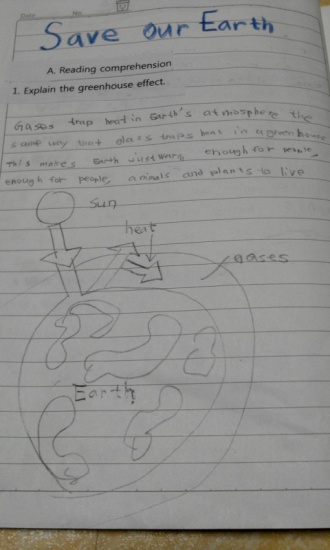 Date No.
Save our Earth
A. Reading comprehension
1. Explain the greenhouse effect.
Gases trap heat in Earth's atmosphere the
same way that glass traps heat in a greenhouse
This makes Earth just warm enough for
enough for people, animals and plants to live
sun
heat
gases
Earth